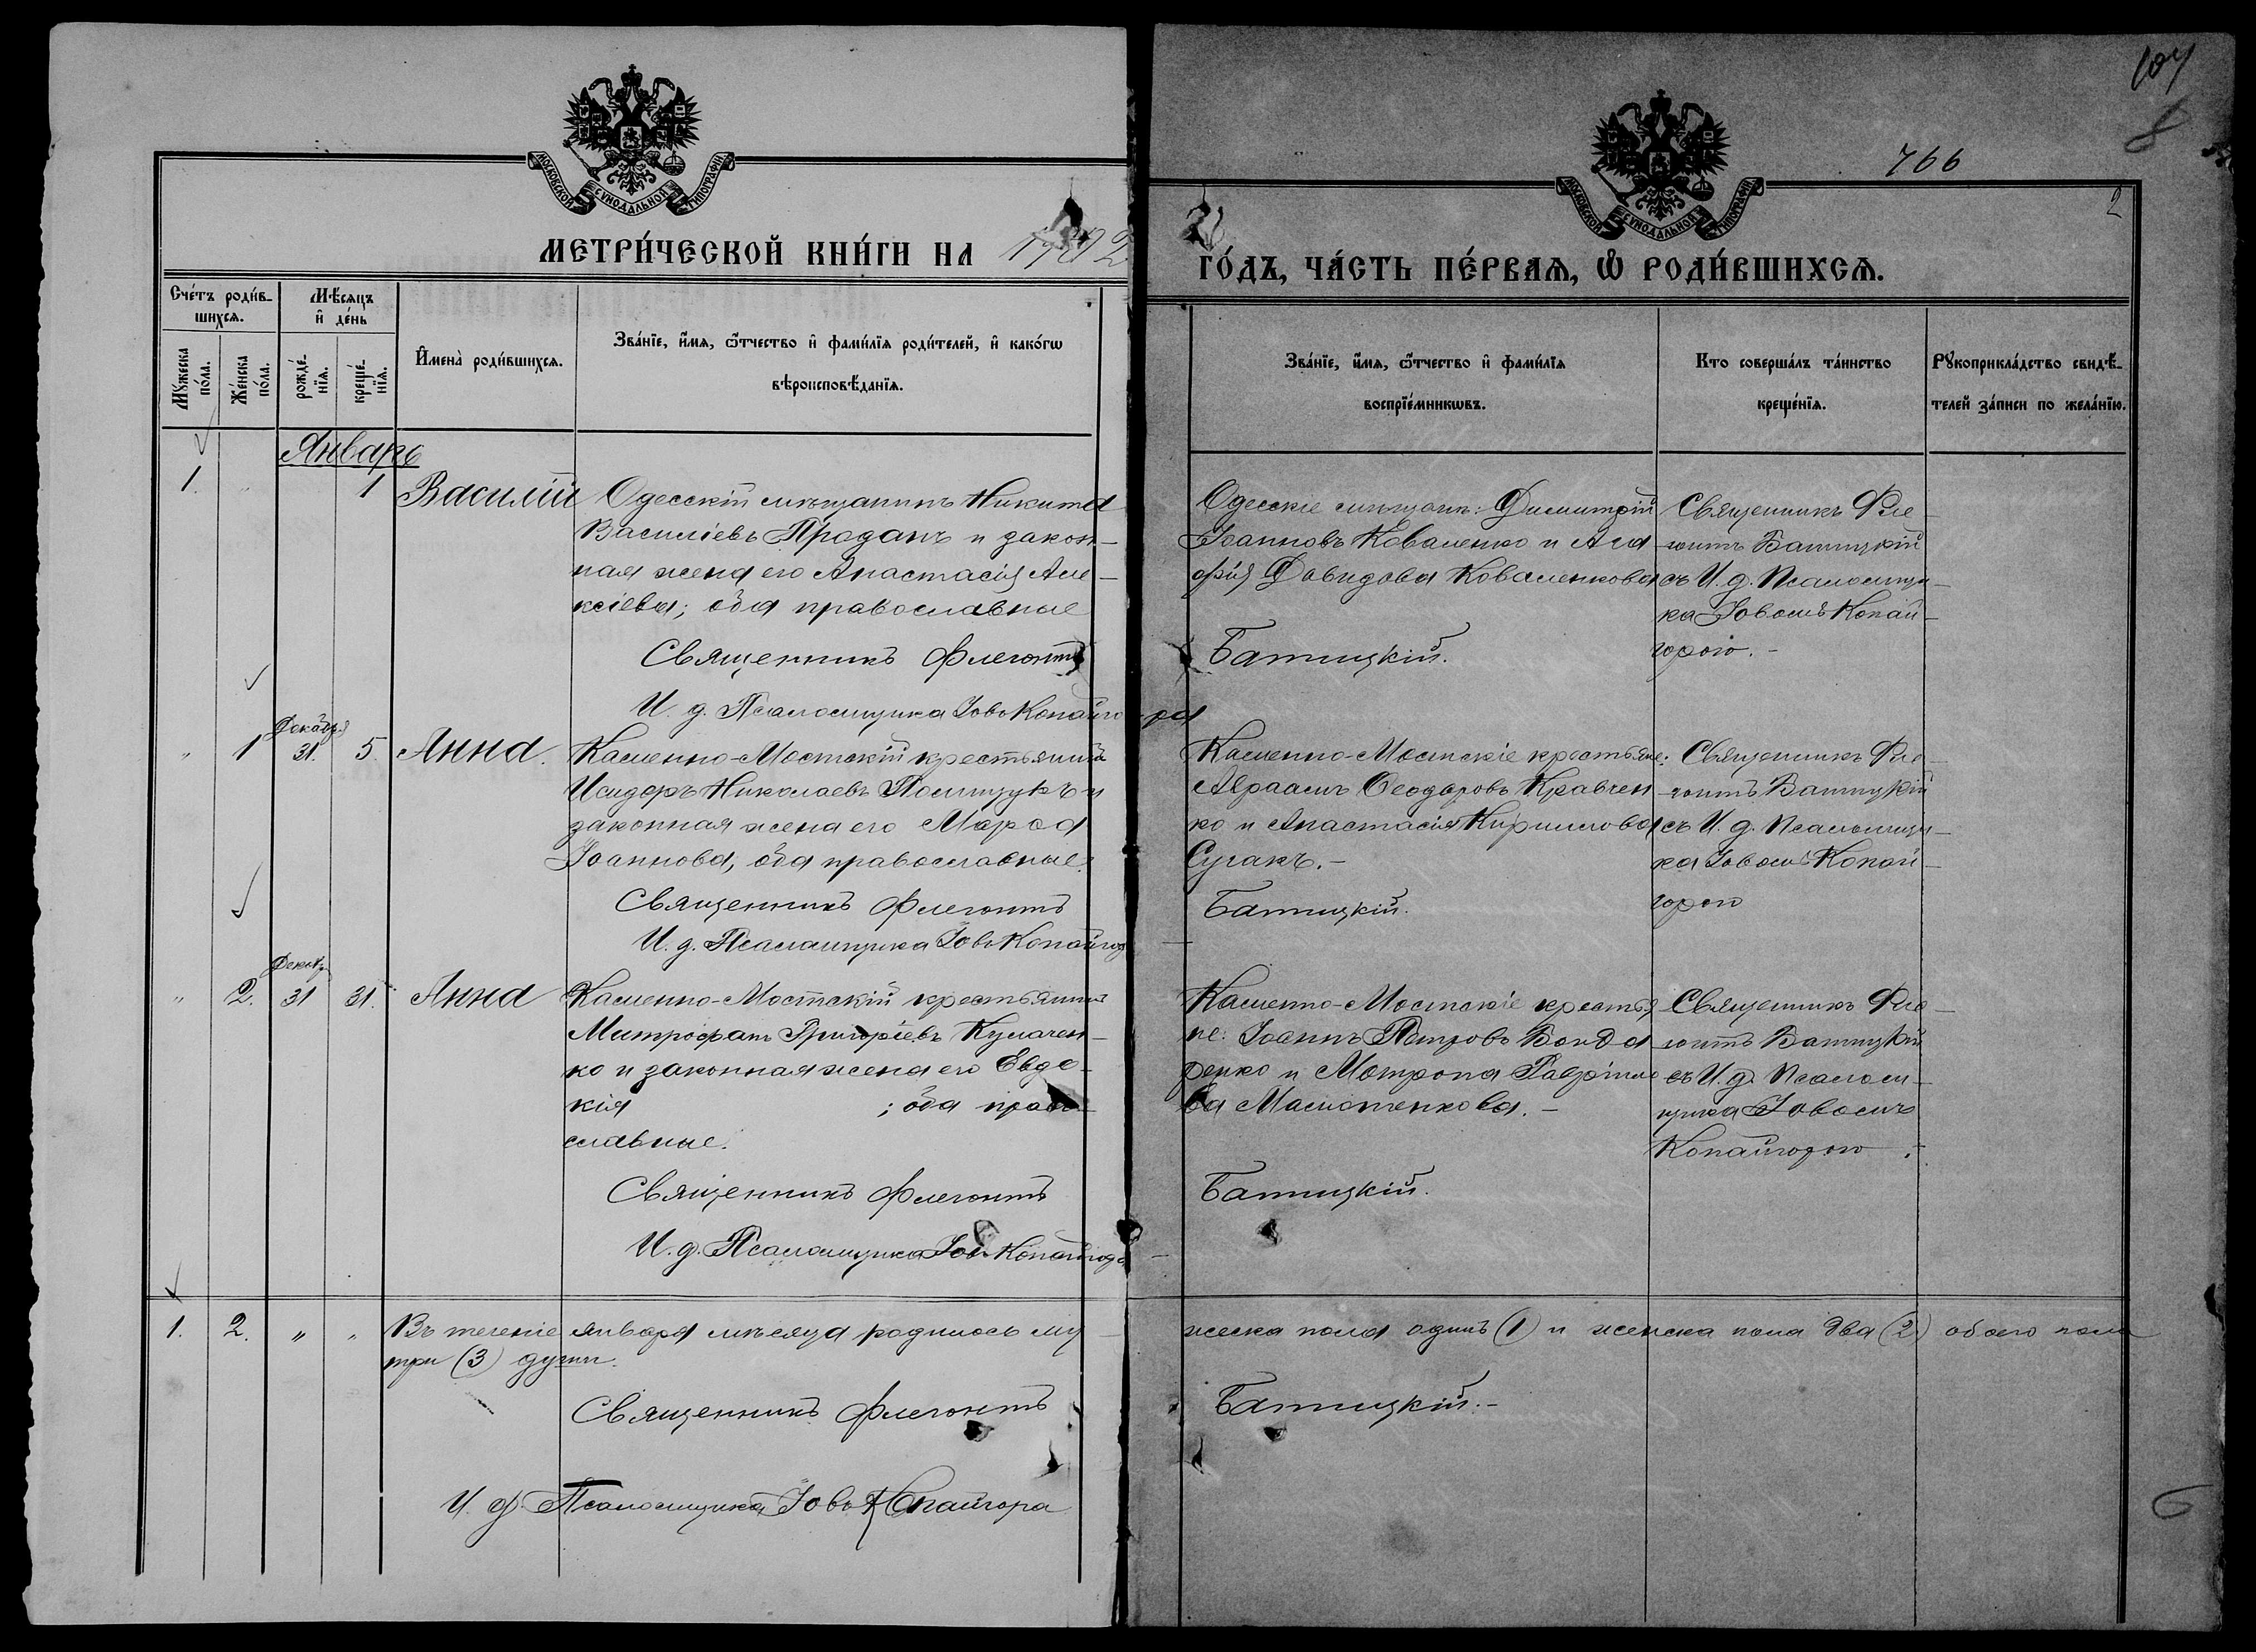 104
8
766
2
МОСКОВСКОЙ СѴНОДАЛЬНОЙ ТИПОГРАФІИ
МОСКОВСКОЙ СѴНОДАЛЬНОЙ ТИПОГРАФІИ
МЕТРИ́ЧЕСКОЙ КНИ́ГИ НА 1902
ГО́ДЪ, ЧА́СТЬ ПЕ́РВАЯ, Ѡ҆ РОДИ́ВШИХСЯ.
Сче́тъ роди́в-
шихсѧ.
Мꙋ́жеска по́ла.
Же́нска по́ла.
Мѣ́сяцъ
и҆ де́нь
рожде́-
нїѧ.
креще́-
нїѧ.
И҆мена̀ роди́вшихсѧ.
Зва́нїе, и҆́мѧ, ѻ҆́тчество и҆ фами́лїѧ роди́телей, и҆ како́гѡ
вѣроисповѣ́данїѧ.
Зва́нїе, и҆́мѧ, ѻ҆́тчество и҆ фами́лїѧ
воспрїе́мникѡвъ.
Кто соверша́лъ та́инство
креще́нїѧ.
Рꙋкоприкла́дство свидѣ́-
телей за́писи по жела́нїю.
Январь
1. " 1 Василій
Одесскій мѣщанинъ Никита
Василіевъ Проданъ и закон-
ная жена его Анастасія Але-
ксіева; оба православные
Священникъ Флегонтъ
И. д. Псаломщика Іовъ Копайго-ра
Одесскіе мѣщане: Димитрій
Іоанновъ Коваленко и Ага
фія Давидова Коваленкова
Батицкій.
Священникъ Фле-
гонтъ Батицкій
съ И. д. Псаломщи-
ка Іовомъ Копай-
горою.-
" 1 Декабря 31. 5. Анна.
Каменно-Мостскій крестьянинъ
Исидоръ Николаевъ Полищукъ и
законная жена его Марѳа
Іоаннова; оба православные.
Священникъ Флегонтъ
И. д. Псаломщика Іовъ Копайгор
Каменно-Мостскіе крестьяне:
Авраамъ Ѳеодоровъ Кравчен
ко и Анастасія Кириллова
Сугакъ.-
Батицкій.
Священникъ Фле-
гонтъ Батицкій
съ И. д. Псаломщи-
ка Іовомъ Копай-
горою
" 2. Декабр 31 31. Анна
Каменно-Мостскій крестьянинъ
Митрофанъ Григоріевъ Кулачен-
ко и законная жена его Евдо-
кія ; оба право-
славные.
Священникъ Флегонтъ
И. д. Псаломщика Іовъ Копайгора
Каменно-Мостскіе крестья
не: Іоаннъ Петровъ Бонда
ренко и Матрона Гавріило
ва Малютенкова.-
Батицкій.
Священникъ Фле-
гонтъ Батицкій
съ И. д. Псалом-
щика Іовомъ
Копайгорою.-
1. 2. " " Въ теченіе января мѣсяца родилось му-жеска пола одинъ (1) и женска пола два (2) обоего пола
три (3) души.
Священникъ Флегонтъ Батицкій.-
И. д. Псаломщика Іовъ Копайгора
6